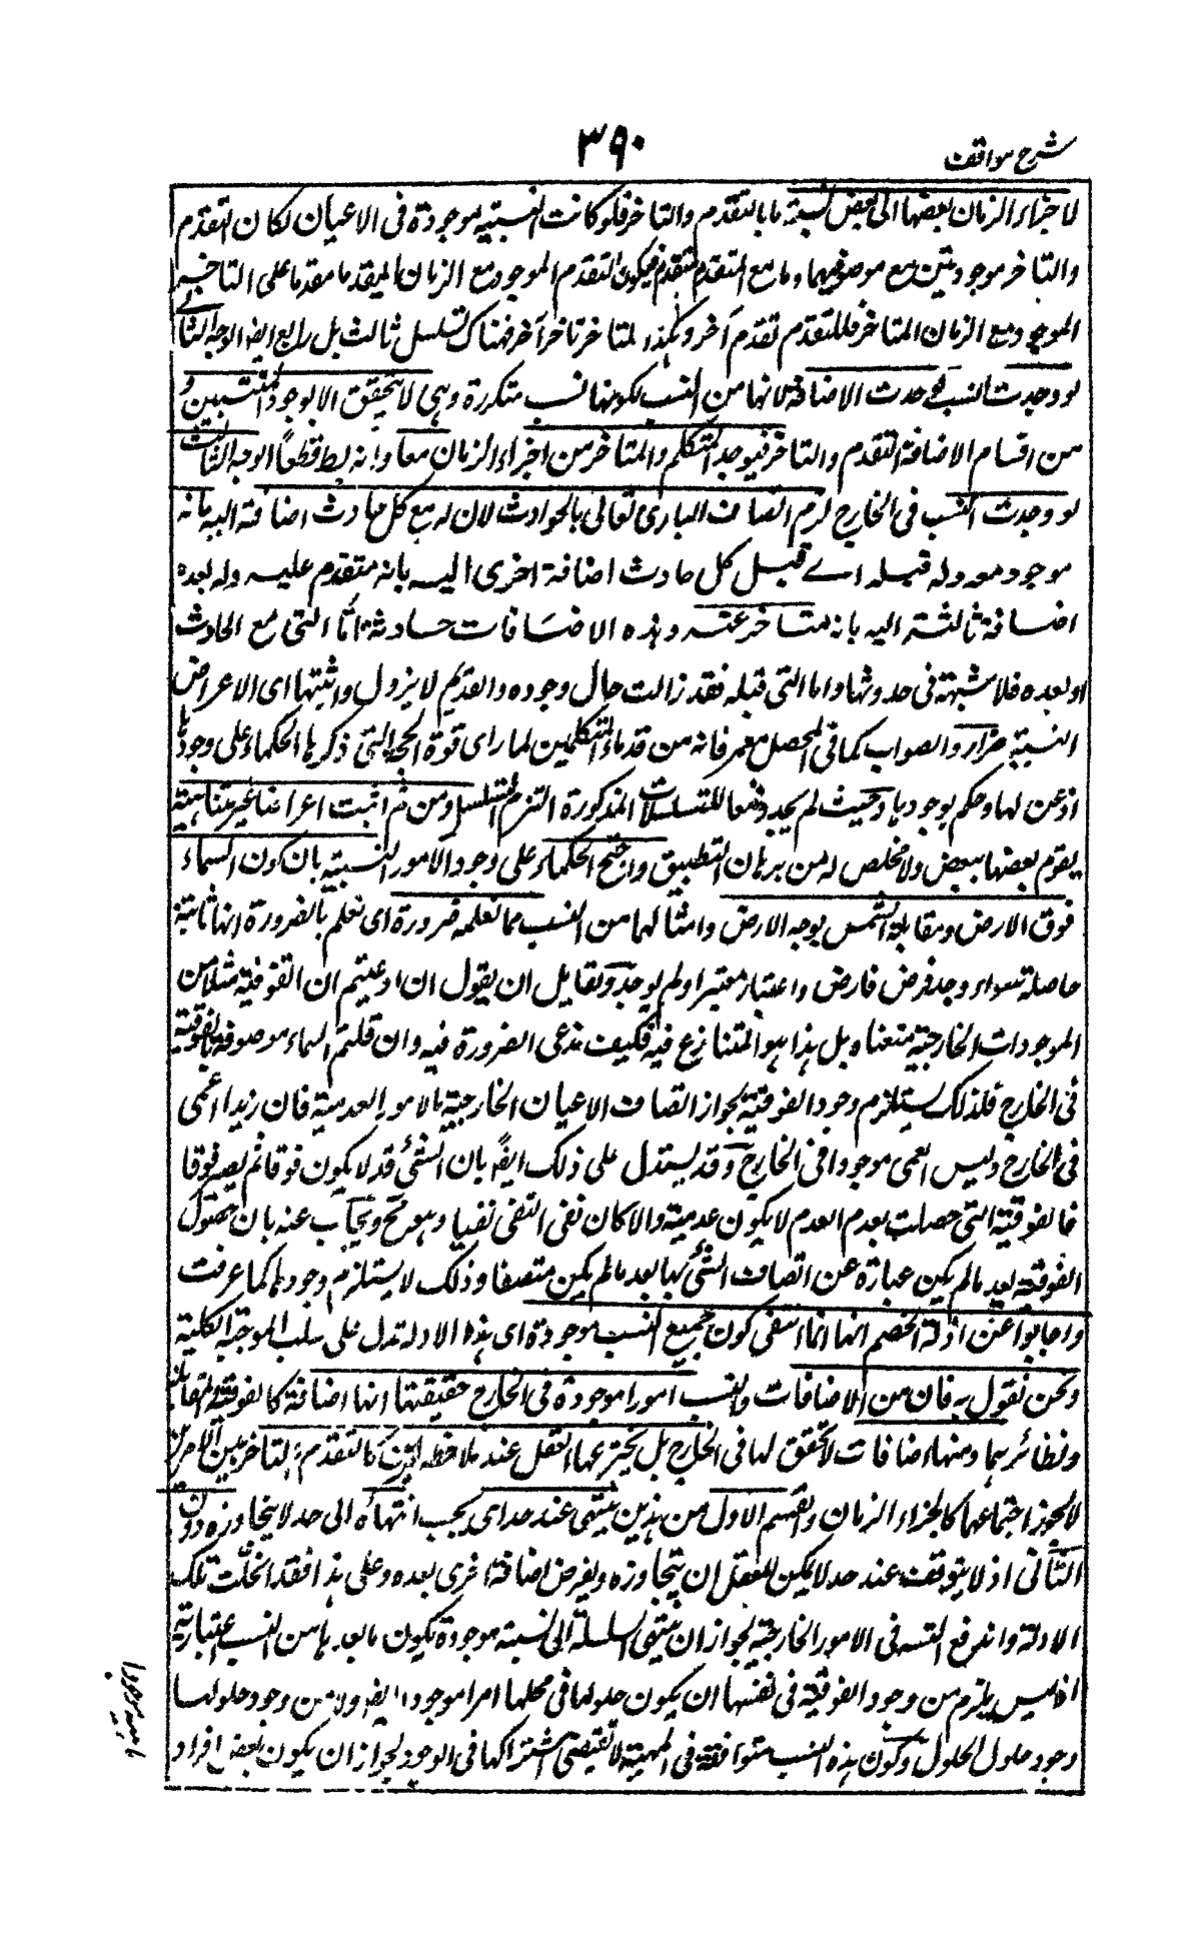 شرح مواقف
۳۹۰
لاجزاء الزمان بعضها الى بعض نسبة ما بالتقدم والتاخر فلو كانت النسبية موجودة فى الاعيان لكان التقدم
والتاخر موجودتين مع موصوفيهما وما مع المتقدم متقدم فيكون التقدم الموجود مع الزمان المتقدم مقدما على التاخر
الموجود مع الزمان المتاخر فللتقدم تقدم آخر وهكذا للتاخر تاخر آخر فهناك تسلسل ثالث بل رابع ايضا الوجه الثانى
لو وجدت النسب لوجدت الاضافة لانها من النسب لكونها نسب متكررة وهى لا تحقق الا بوجود المنتسبين و
من اقسام الاضافة التقدم والتاخر فيوجد المتكلم والمتاخر من اجزاء الزمان معا وانه بط قطعاً الوجه الثالث
لو وجدت النسب فى الخارج لزم اتصاف البارى تعالى بالحوادث لان له مع كل حادث اضافة اليه بانه
موجود معه وله قبله اے قبل كل حادث اضافة اخرى اليه بانه متقدم عليه وله بعده
اضافة ثالثة اليه بانه متاخر عنه وهذه الاضافات حادثة اما التى مع الحادث
او بعده فلا شبهة فى حدوثها واما التى قبله فقد زالت حال وجوده والقديم لا يزول واثبتها اى الاعراض
النسبية ضرار والصواب كما فى المحصل معمر فانه من قدماء المتكلمين لما راى قوة الحجج التى ذكرها الحكماء على وجودها
اذعن لها وحكم بوجودها وحيث لم يجد دفعا للتسلسلات المذكورة التزم التسلسل ومن ثم اثبت اعراضا غير متناهية
يقوم بعضها ببعض ولا مخلص له من برهان التطبيق واحتج الحكماء على وجود الامور النسبية بان كون السماء
فوق الارض ومقابلة الشمس بوجه الارض وامثالهما من النسب مما نعلمه ضرورة اى نعلم بالضرورة انها ثابتة
حاصلة سواء وجد فرض فارض واعتبار معتبر او لم يوجد ولقايل ان يقول ان ادعيتم ان الفوقية مثلا من
الموجودات الخارجية منعناه بل هذا هو المتنازع فيه فكيف ندعى الضرورة فيه وان قلتم السماء موصوفة بالفوقية
فى الخارج فلذلك يستلزم وجود الفوقية لجواز اتصاف الاعيان الخارجية بالامور العدمية فان زيدا اعمى
فى الخارج وليس العمى موجودا فى الخارج وقد يستدل على ذلك ايضاً بان الشئ قد لا يكون فوقا ثم يصير فوقا
فالفوقية التى حصلت بعدم العدم لا يكون عدمية والا كان نفى النفى نفيا وهو مح ويجاب عنه بان حصول
الفوقية بعد ما لم يكن عبارة عن اتصاف الشئ بها بعد ما لم يكن متصفا وذلك لا يستلزم وجودها كما عرفت
واجابوا عن ادلة الخصم انها انما تنفى كون جميع النسب موجودة اى هذه الادلة تدل على سلب الموجبة الكلية
ونحن نقول به فان من الاضافات والنسب امورا موجودة فى الخارج حقيقتها انها اضافة كالفوقية والمقابلة
ونظائرهما ومنها اضافات لا تحقق لها فى الخارج بل يخترعها العقل عند ملاحظة امرين كالتقدم والتاخر بين الامرين
لا يجوز اجتماعها كاجزاء الزمان والقسم الاول من هذين ينتهى عند حد اى يجب انتهاؤه الى حد لا يتجاوزه دون
الثانى اذ لا يتوقف عند حد لا يمكن للعقل ان يتجاوزه ويفرض اضافة اخرى بعده وعلى هذا فقد انحلت تلك
الادلة واندفع التسه فى الامور الخارجية لجواز ان ينتهى السلسلة الى نسبة موجودة يكون ما بعدها من النسب اعتبارية
اذ ليس يلزم من وجود الفوقية فى نفسها ان يكون حلولها فى محلها امرا موجودا ايضا ولا من وجود حلولها
وجود حلول الحلول وكون هذه النسب متوافقة فى المهية لا تقتضى اشتراكها فى الوجود لجواز ان يكون بعض افراد